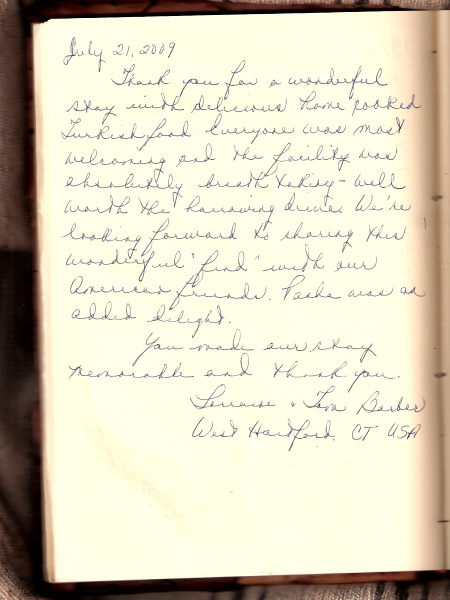 July 21, 2009
Thank you for a wonderful
stay with delicious home cooked
Turkish food. Everyone was most
welcoming and the facility was
absolutely breath taking - well
worth the harrowing drive. We're
looking forward to sharing this
wonderful "find" with our
American friends. Pasha was an
added delight.
You made our stay
memorable and thank you.
Lorraine & Tom Barber
West Hartford, CT USA